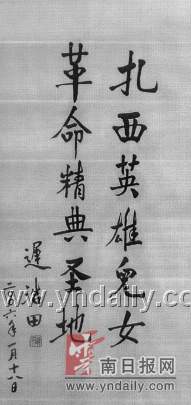 扎西英雄兒女
革命精典圣地
遲浩田
二〇〇六年一月十八日
www.yndaily.com
云南日报网
www.yndaily.com